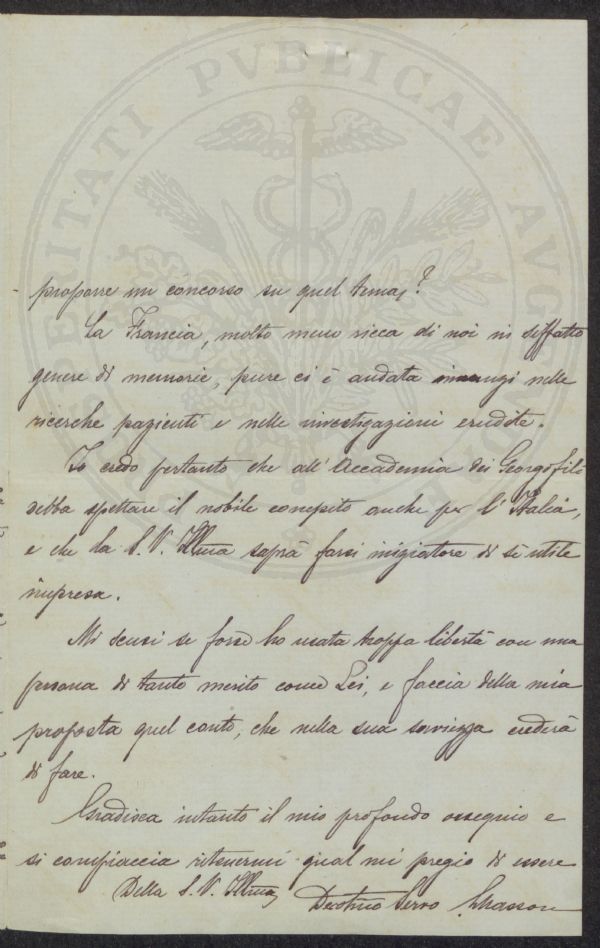 PROSPERITATI PVBLICAE AVGENDAE
proporre un concorso su quel tema?
La Francia, molto meno ricca di noi in siffatto
genere di memorie, pure ci è andata innanzi nelle
ricerche pazienti e nelle investigazioni erudite.
Io credo pertanto che all'Accademia dei Georgofili
debba spettare il nobile compito anche per l'Italia,
e che la S. V. Illma saprà farsi iniziatore di sì utile
impresa.
Mi scusi se forse ho usata troppa libertà con una
persona di tanto merito come Lei, e faccia della mia
proposta quel conto, che nella sua saviezza crederà
di fare.
Gradisca intanto il mio profondo ossequio e
si compiaccia ritenermi qual mi pregio di essere
Della S. V. Illma
Devotmo Servo